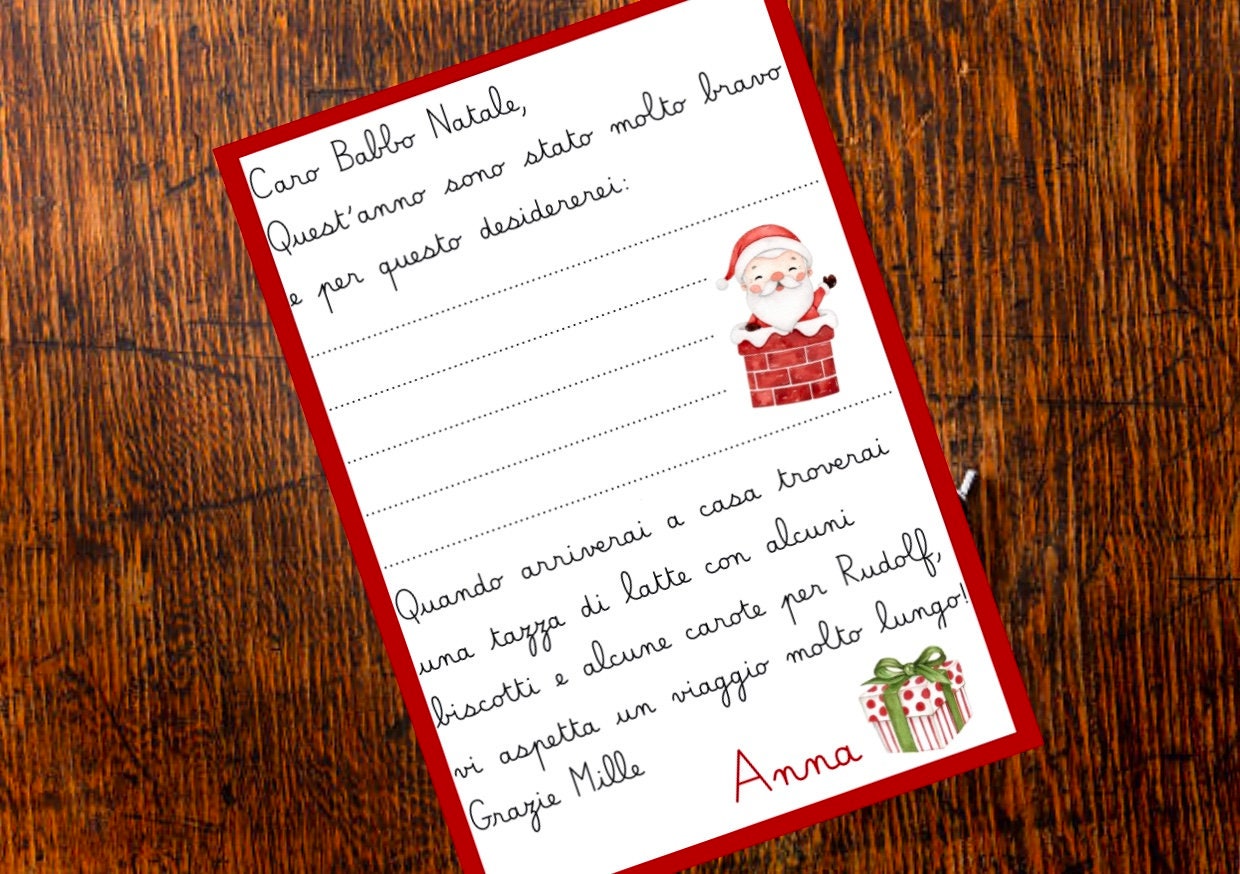 Caro Babbo Natale,
Quest'anno sono stato molto bravo
e per questo desidererei:
Quando arriverai a casa troverai
una tazza di latte con alcuni
biscotti e alcune carote per Rudolf,
vi aspetta un viaggio molto lungo!
Grazie Mille
Anna